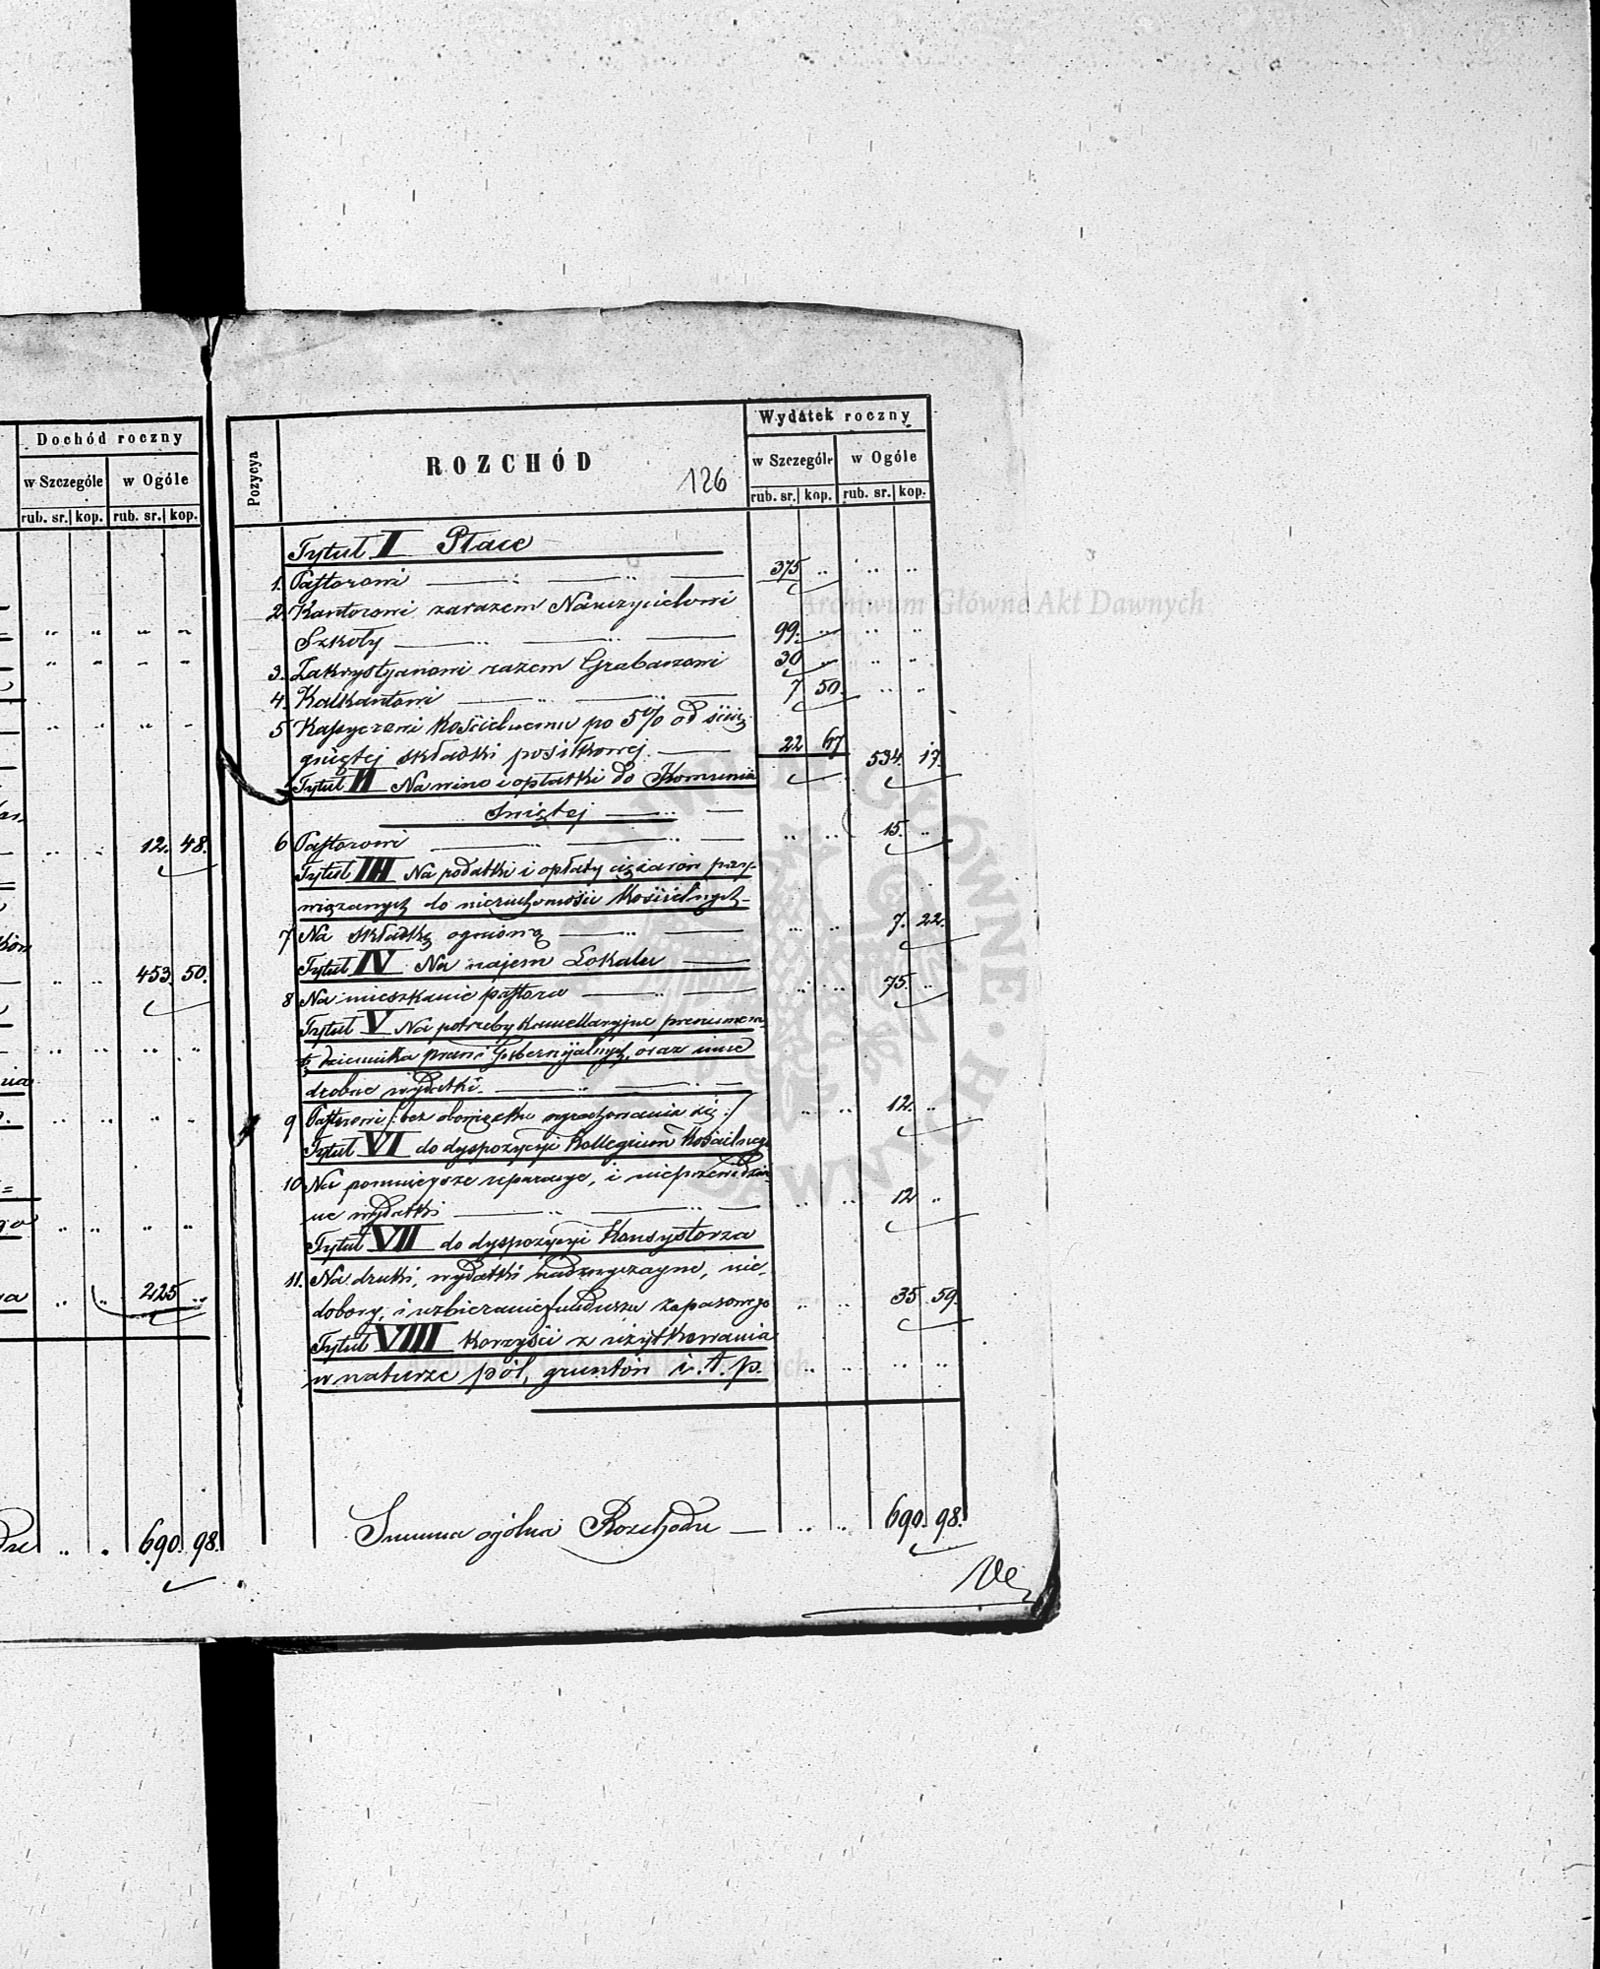 Dochód roczny
w Szczególe w Ogóle
rub. sr. kop. rub. sr. kop.
12. 48.
453. 50.
225 ..
690. 98.
Wydatek roczny
Pozycya ROZCHÓD w Szczególe w Ogóle
126
rub. sr. kop. rub. sr. kop.
Tytuł I Płace
1. Pastorowi 375 ..
2. Kantorowi zarazem Nauczycielowi
Szkoły 99. ..
3. Zakrystyanowi razem Grabarzowi 30 ..
4. Kalkantowi 7 50.
5 Kassyerowi Kościelnemu po 5% od ścią-
gniętej składki posiłkowej 22 67 534. 17.
Tytuł II Na wino i opłatki do Kommunii
Świętej
6 Pastorowi .. .. 15. ..
Tytuł III Na podatki i opłaty ciężarów przy-
wiązanych do nieruchomości Kościelnych
7 Na składkę ogniową .. .. 7. 22.
Tytuł IV Na najem Lokalu
8 Na mieszkanie pastora .. .. 75. ..
Tytuł V Na potrzeby kancellaryjne prenumera-
tę dziennika praw i Gubernijalnych, oraz inne
drobne wydatki.
9 Pastorowi /: bez obowiązku wyrachowania się :/ .. .. 12. ..
Tytuł VI do dyspozycyi Kollegium Kościelnego
10 Na pomniejsze reparacye, i nieprzewidzia-
ne wydatki .. .. 12 ..
Tytuł VII do dyspozycyi Konsystorza
11. Na druki, wydatki nadzwyczajne, nie-
dobory, i uzbieranie funduszu zapasowego .. .. 35 59.
Tytuł VIII Korzyści z użytkowania
w naturze pól, gruntów i. t. p. .. .. .. ..
Summa ogólna Rozchodu .. .. 690. 98.
Archiwum Główne Akt Dawnych